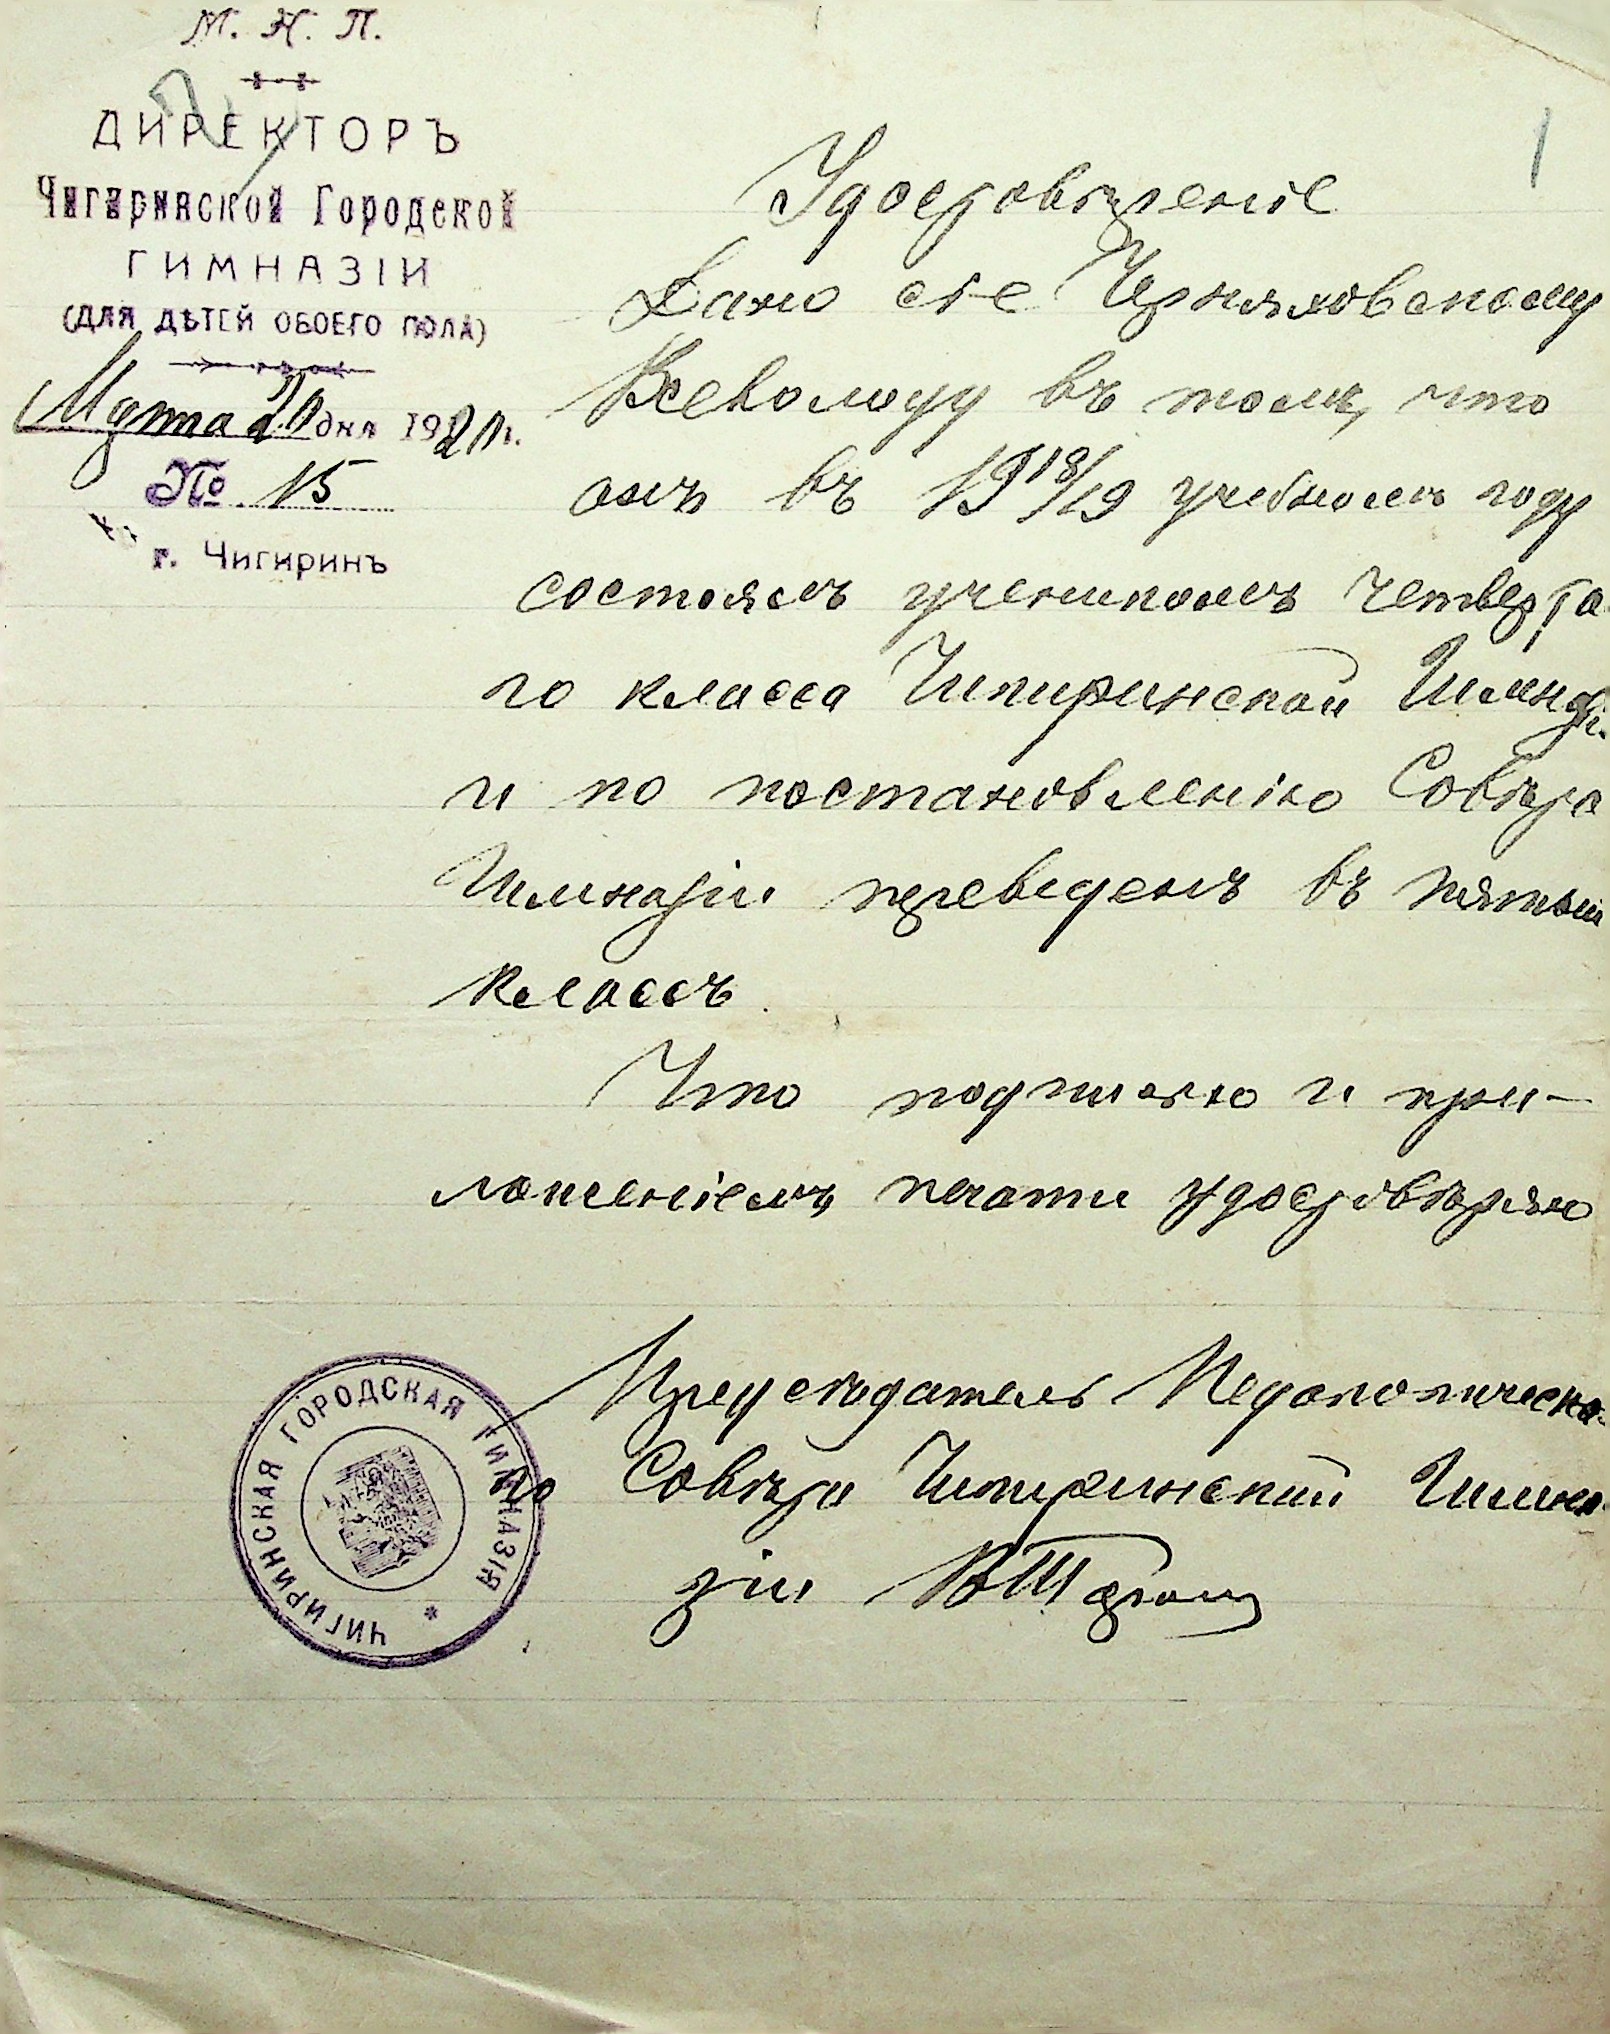 М. Н. П.
ДИРЕКТОРЪ
Чигиринской Городской
ГИМНАЗІИ
(ДЛЯ ДѢТЕЙ ОБОЕГО ПОЛА)
Марта 20 дня 1920 г.
№ 15
г. Чигиринъ
1
Удостовѣреніе
Дано сіе Черняховскому
Всеволоду въ томъ, что
онъ въ 1918/19 учебномъ году
состоялъ ученикомъ четверта-
го класса Чигиринской Гимназіи
и по постановленію Совѣта
Гимназіи переведенъ въ пятый
классъ.
Что подписью и при-
ложеніемъ печати удостовѣряю
Предсѣдатель Педагогическа-
го Совѣта Чигиринской Гимна-
зіи
ЧИГИРИНСКАЯ ГОРОДСКАЯ ГИМНАЗІЯ *